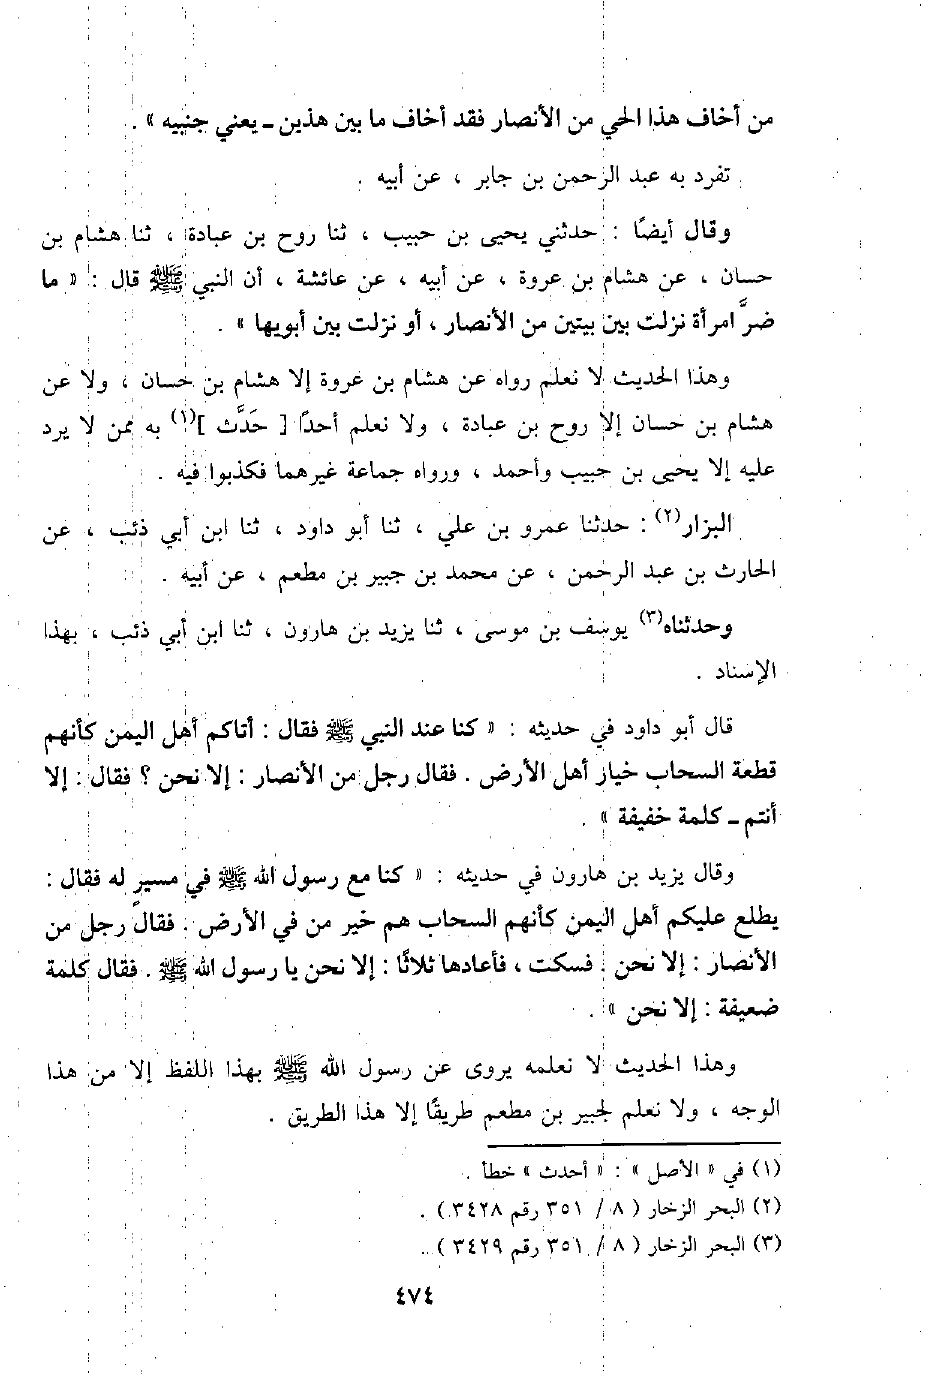 من أخاف هذا الحي من الأنصار فقد أخاف ما بين هذين ـ يعني جنبيه » .
تفرد به عبد الرحمن بن جابر ، عن أبيه .
وقال أيضًا : حدثني يحيى بن حبيب ، ثنا روح بن عبادة ، ثنا هشام بن
حسان ، عن هشام بن عروة ، عن أبيه ، عن عائشة ، أن النبي ﷺ قال : « ما
ضرَّ امرأة نزلت بين بيتين من الأنصار ، أو نزلت بين أبويها » .
وهذا الحديث لا نعلم رواه عن هشام بن عروة إلا هشام بن حسان ، ولا عن
هشام بن حسان إلا روح بن عبادة ، ولا نعلم أحدًا [ حَدَّث ](١) به ممن لا يرد
عليه إلا يحيى بن حبيب وأحمد ، ورواه جماعة غيرهما فكذبوا فيه .
البزار(٢) : حدثنا عمرو بن علي ، ثنا أبو داود ، ثنا ابن أبي ذئب ، عن
الحارث بن عبد الرحمن ، عن محمد بن جبير بن مطعم ، عن أبيه .
وحدثناه(٣) يوسف بن موسى ، ثنا يزيد بن هارون ، ثنا ابن أبي ذئب ، بهذا
الإسناد .
قال أبو داود في حديثه : « كنا عند النبي ﷺ فقال : أتاكم أهل اليمن كأنهم
قطعة السحاب خيار أهل الأرض . فقال رجل من الأنصار : إلا نحن ؟ فقال : إلا
أنتم ـ كلمة خفيفة » .
وقال يزيد بن هارون في حديثه : « كنا مع رسول الله ﷺ في مسيرٍ له فقال :
يطلع عليكم أهل اليمن كأنهم السحاب هم خير من في الأرض . فقال رجل من
الأنصار : إلا نحن . فسكت ، فأعادها ثلاثًا : إلا نحن يا رسول الله ﷺ . فقال كلمة
ضعيفة : إلا نحن » .
وهذا الحديث لا نعلمه يروى عن رسول الله ﷺ بهذا اللفظ إلا من هذا
الوجه ، ولا نعلم لجبير بن مطعم طريقًا إلا هذا الطريق .
(١) في « الأصل » : « أحدث » خطأ .
(٢) البحر الزخار ( ٨ / ٣٥١ رقم ٣٤٢٨ ) .
(٣) البحر الزخار ( ٨ / ٣٥١ رقم ٣٤٢٩ ) .
٤٧٤